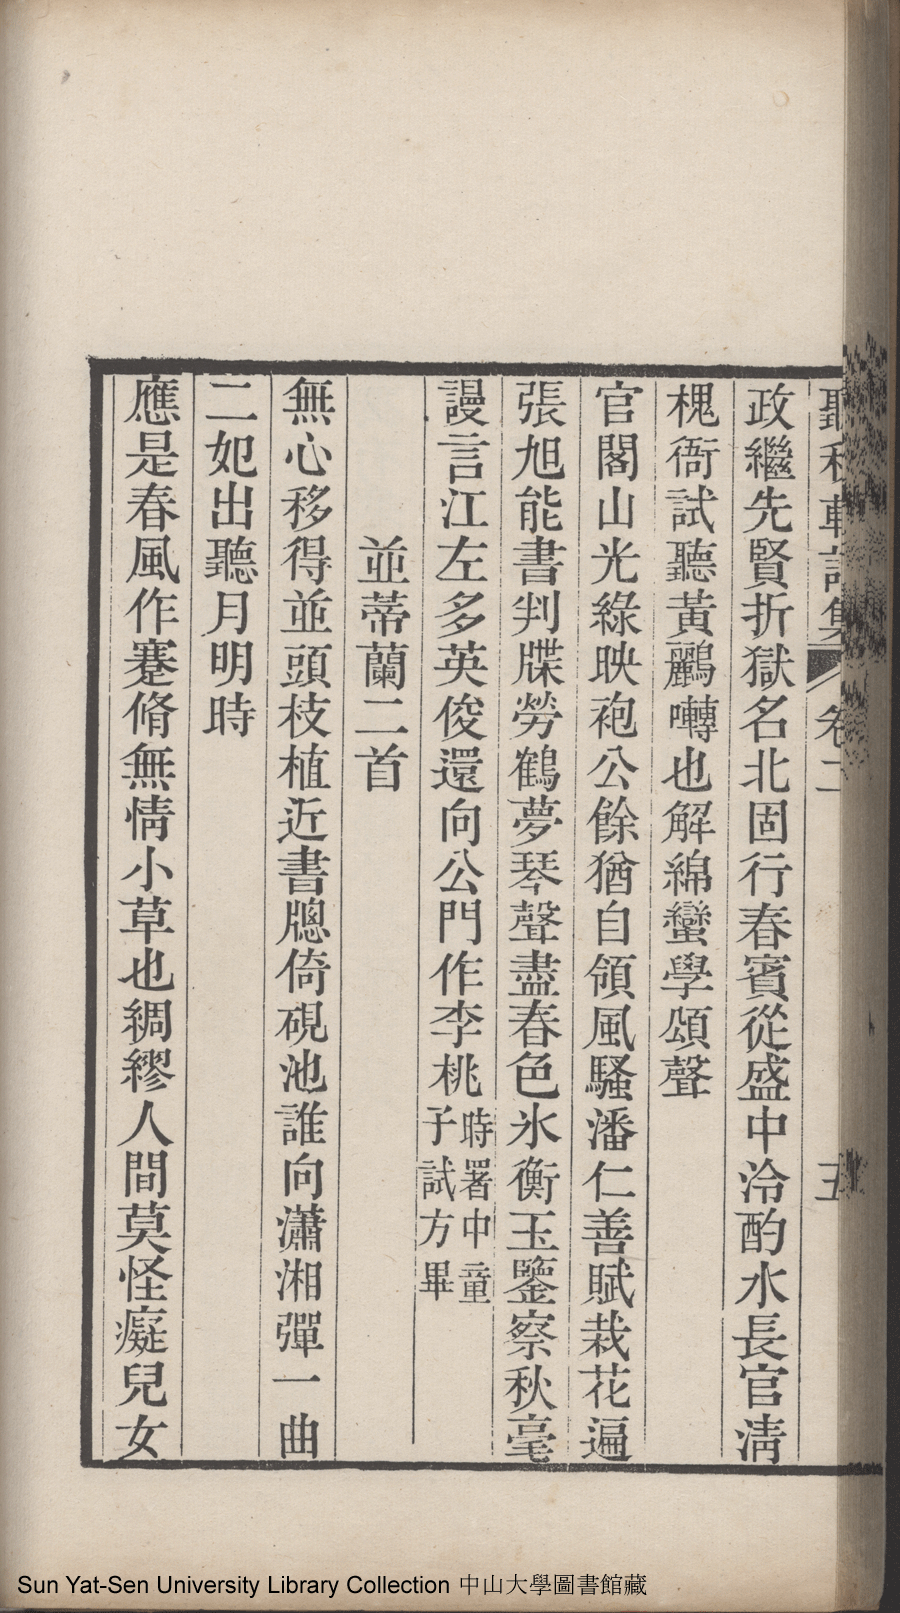 聽秋軒詩集 卷二 五
政繼先賢折獄名北固行春賓從盛中泠酌水長官淸
槐衙試聽黃鸝囀也解綿蠻學頌聲
官閣山光綠映袍公餘猶自領風騷潘仁善賦栽花遍
張旭能書判牒勞鶴夢琴聲盡春色氷衡玉鑒察秋毫
謾言江左多英俊還向公門作李桃時署中童
子試方畢
並蒂蘭二首
無心移得並頭枝植近書牕倚硯池誰向瀟湘彈一曲
二妃出聽月明時
應是春風作蹇脩無情小草也綢繆人間莫怪癡兒女
Sun Yat-Sen University Library Collection 中山大學圖書館藏